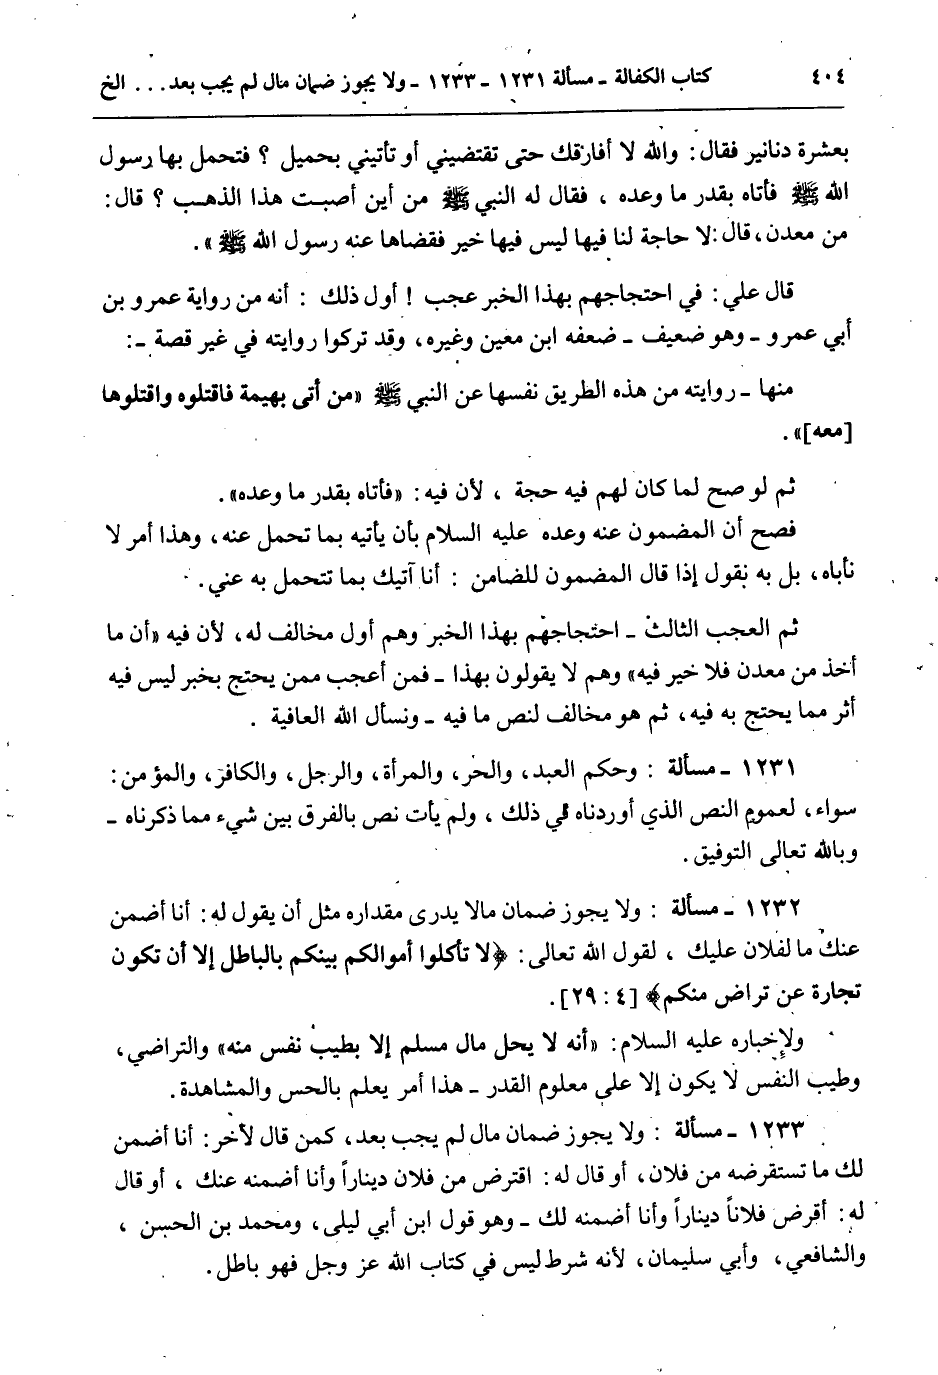 ٤٠٤ كتاب الكفالة ـ مسألة ١٢٣١ ـ ١٢٣٣ ـ ولا يجوز ضمان مال لم يجب بعد... الخ
بعشرة دنانير فقال: والله لا أفارقك حتى تقتضيني أو تأتيني بحميل ؟ فتحمل بها رسول
الله ﷺ فأتاه بقدر ما وعده ، فقال له النبي ﷺ من أين أصبت هذا الذهب ؟ قال:
من معدن، قال: لا حاجة لنا فيها ليس فيها خير فقضاها عنه رسول الله ﷺ».
قال علي: في احتجاجهم بهذا الخبر عجب ! أول ذلك : أنه من رواية عمرو بن
أبي عمرو ـ وهو ضعيف ـ ضعفه ابن معين وغيره، وقد تركوا روايته في غير قصة ـ:
منها ـ روايته من هذه الطريق نفسها عن النبي ﷺ «من أتى بهيمة فاقتلوه واقتلوها
[معه]».
ثم لو صح لما كان لهم فيه حجة ، لأن فيه: «فأتاه بقدر ما وعده».
فصح أن المضمون عنه وعده عليه السلام بأن يأتيه بما تحمل عنه، وهذا أمر لا
نأباه، بل به نقول إذا قال المضمون للضامن : أنا آتيك بما تتحمل به عني.
ثم العجب الثالث ـ احتجاجهم بهذا الخبر وهم أول مخالف له، لأن فيه «أن ما
أخذ من معدن فلا خير فيه» وهم لا يقولون بهذا ـ فمن أعجب ممن يحتج بخبر ليس فيه
أثر مما يحتج به فيه، ثم هو مخالف لنص ما فيه ـ ونسأل الله العافية .
١٢٣١ ـ مسألة : وحكم العبد، والحر، والمرأة، والرجل، والكافر، والمؤمن:
سواء، لعموم النص الذي أوردناه في ذلك ، ولم يأت نص بالفرق بين شيء مما ذكرناه ـ
وبالله تعالى التوفيق.
١٢٣٢ ـ مسألة : ولا يجوز ضمان مالا يدرى مقداره مثل أن يقول له: أنا أضمن
عنك ما لفلان عليك ، لقول الله تعالى: ﴿لا تأكلوا أموالكم بينكم بالباطل إلا أن تكون
تجارة عن تراض منكم﴾ [٤ : ٢٩].
ولإخباره عليه السلام: «أنه لا يحل مال مسلم إلا بطيب نفس منه» والتراضي،
وطيب النفس لا يكون إلا على معلوم القدر ـ هذا أمر يعلم بالحس والمشاهدة.
١٢٣٣ ـ مسألة : ولا يجوز ضمان مال لم يجب بعد، كمن قال لآخر: أنا أضمن
لك ما تستقرضه من فلان، أو قال له: اقترض من فلان ديناراً وأنا أضمنه عنك ، أو قال
له: أقرض فلاناً ديناراً وأنا أضمنه لك ـ وهو قول ابن أبي ليلى، ومحمد بن الحسن ،
والشافعي، وأبي سليمان، لأنه شرط ليس في كتاب الله عز وجل فهو باطل.